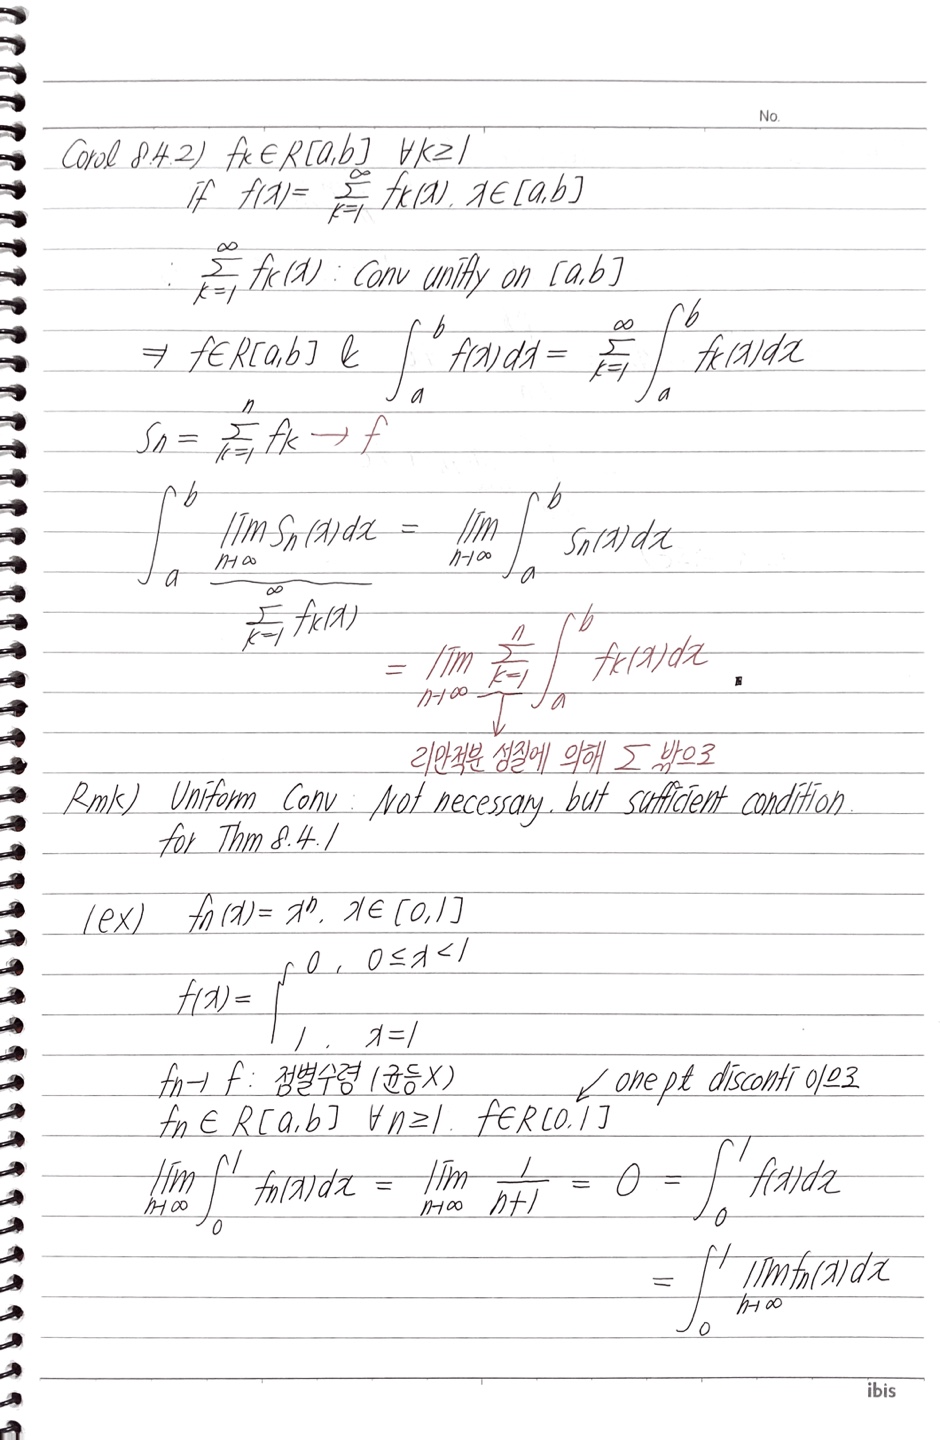 No.
Corol 8.4.2) fk ∈ R[a,b] ∀k≥1
if f(x) = ∑_{k=1}^{∞} fk(x). x∈[a,b]
: ∑_{k=1}^{∞} fk(x) : Conv unifly on [a,b]
⇒ f∈R[a,b] & ∫_a^b f(x)dx = ∑_{k=1}^{∞} ∫_a^b fk(x)dx
Sn = ∑_{k=1}^{n} fk → f
∫_a^b lim_{n→∞} Sn(x)dx = lim_{n→∞} ∫_a^b Sn(x)dx
∑_{k=1}^{∞} fk(x)
= lim_{n→∞} ∑_{k=1}^{n} ∫_a^b fk(x)dx ∎
↓
리만적분 성질에 의해 ∑ 밖으로
Rmk) Uniform Conv : Not necessary. but sufficient condition.
for Thm 8.4.1
(ex) fn(x) = xⁿ. x∈[0,1]
f(x) = { 0 , 0≤x<1
1 . x=1
fn→f : 점별수령 (균등X) ↙ one pt disconti 이므로
fn ∈ R[a,b] ∀n≥1. f∈R[0,1]
lim_{n→∞} ∫_0^1 fn(x)dx = lim_{n→∞} 1/(n+1) = 0 = ∫_0^1 f(x)dx
= ∫_0^1 lim_{n→∞} fn(x)dx
ibis